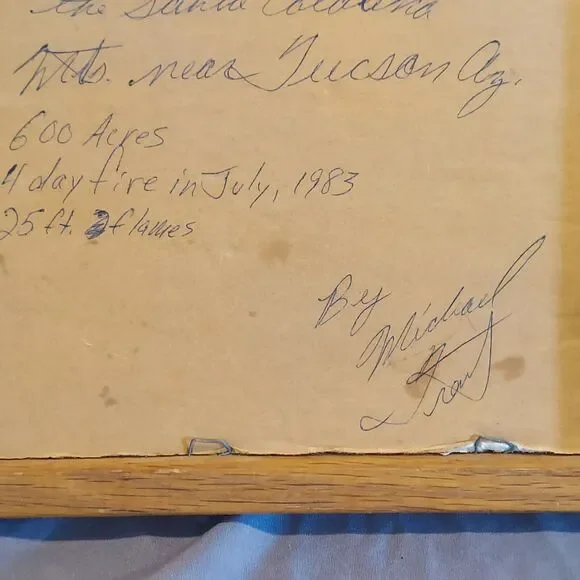 the Santa Catalina
Mts. near Tucson Az.
600 Acres
4 day fire in July, 1983
25 ft. flames
By
Michael